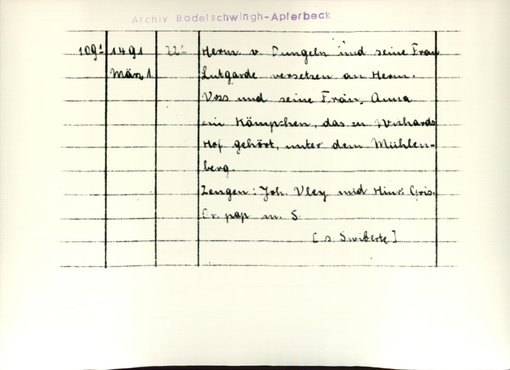 Archiv Bodelschwingh-Aplerbeck
109a 1491 22a Herm. v. Dungeln und seine Frau
März 1. Lutgarde versetzen an Herm.
Voss und seine Frau, Anna
ein Kämpchen, das zu
Hof gehört, unter dem Mühlen-
berg.
Zeugen: Joh. Vley und Hinr. Gris.
Or. pap m. S.
[s. Swiberte]